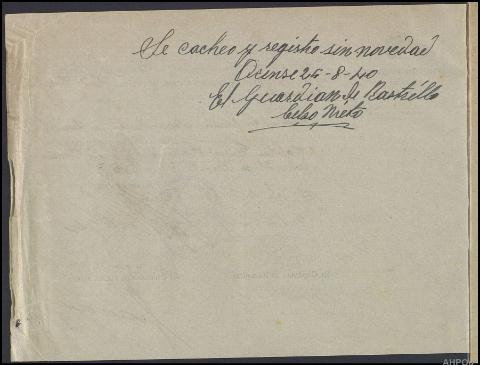 Se cacheo y registro sin novedad
Orense 26-8-40
El Guardian de Rastrillo
Celso Nieto
AHPOU